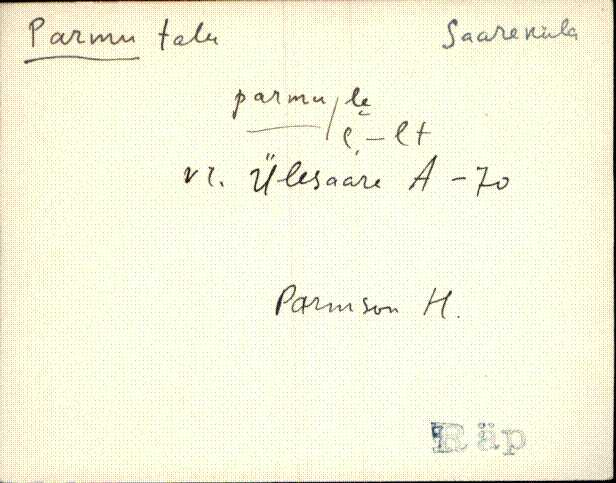 Parmu talu Saareküla
parmu/le
l, – lt
vr. Ülesaare A – 70
Parmson H.
Räp